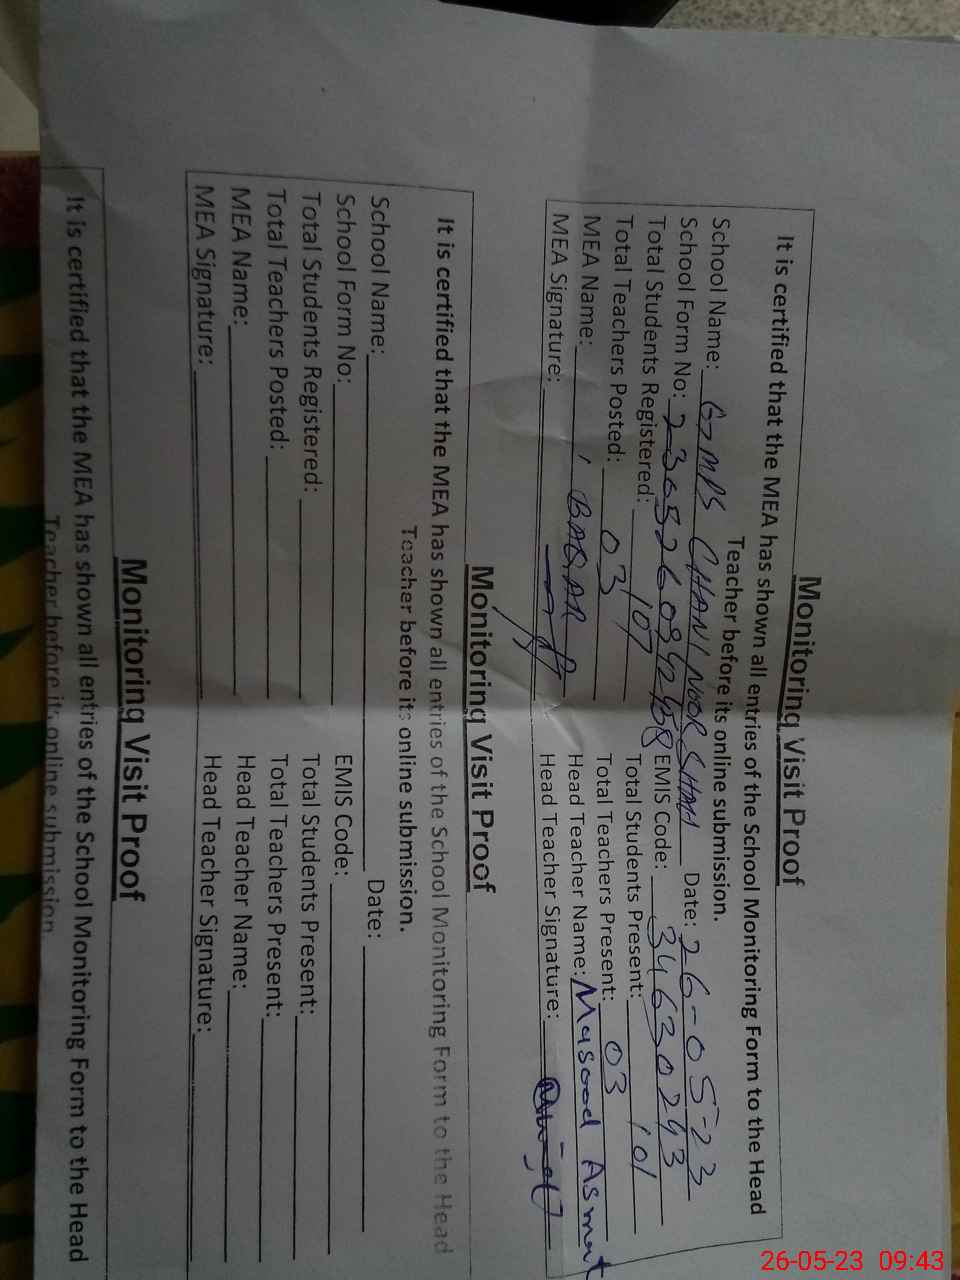 Monitoring Visit Proof
It is certified that the MEA has shown all entries of the School Monitoring Form to the Head
Teacher before its online submission.
School Name: GMPS CHAN NOOR SHAH Date: 26-05-23
School Form No: EMIS Code: 34630293
Total Students Registered: 107 Total Students Present: 101
Total Teachers Posted: 03 Total Teachers Present: 03
MEA Name: BAQAR Head Teacher Name: Masood Asmat
MEA Signature: Head Teacher Signature:
Monitoring Visit Proof
It is certified that the MEA has shown all entries of the School Monitoring Form to the Head
Teacher before its online submission.
School Name: Date:
School Form No: EMIS Code:
Total Students Registered: Total Students Present:
Total Teachers Posted: Total Teachers Present:
MEA Name: Head Teacher Name:
MEA Signature: Head Teacher Signature:
Monitoring Visit Proof
It is certified that the MEA has shown all entries of the School Monitoring Form to the Head
Teacher before its online submission.
26-05-23 09:43